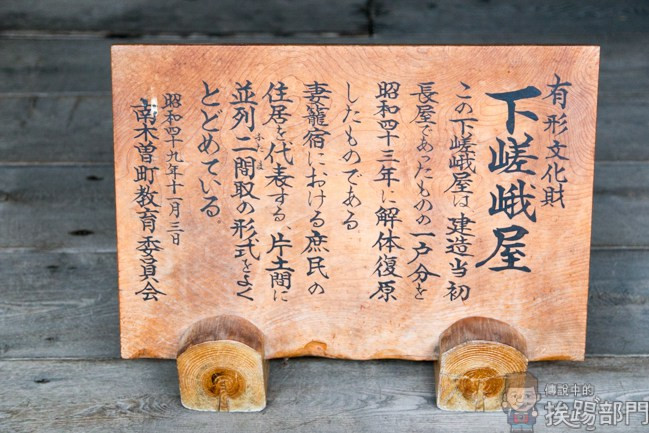 有形文化財
下嵯峨屋
この下嵯峨屋は、建造当初
長屋であったものの一戸分を
昭和四十三年に解体復原
したものである
妻籠宿における庶民の
住居を代表する、片土間に
並列二間取の形式をよく
ふたま
とどめている。
昭和四十九年十一月三日
南木曽町教育委員会
傳說中的
挨踢部門